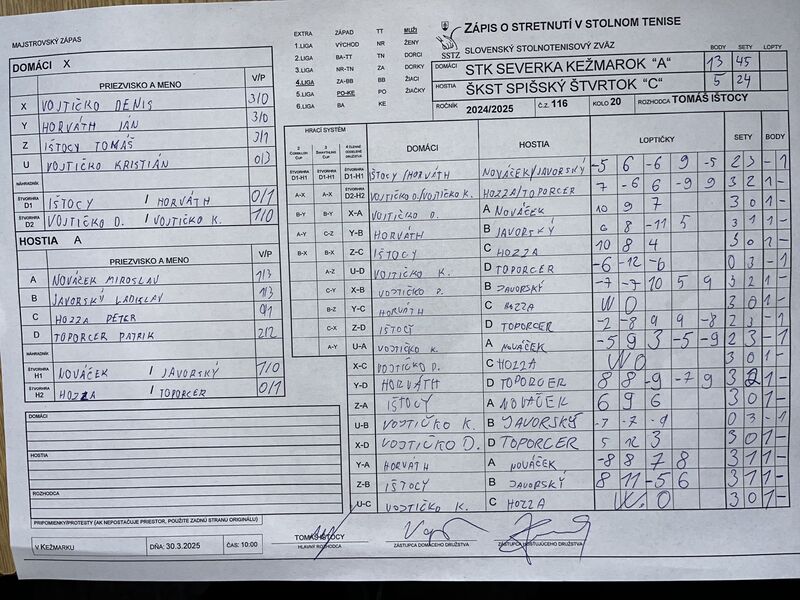 MAJSTROVSKÝ ZÁPAS
DOMÁCI X
PRIEZVISKO A MENO V/P
X VOJTIČKO DENIS 3/0
Y HORVÁTH JÁN 3/0
Z IŠTOCY TOMÁŠ 3/1
U VOJTIČKO KRISTIÁN 0/3
NÁHRADNÍK
ŠTVORHRA D1 IŠTOCY / HORVÁTH 0/1
ŠTVORHRA D2 VOJTIČKO D. / VOJTIČKO K. 1/0
HOSTIA A
PRIEZVISKO A MENO V/P
A NOVÁČEK MIROSLAV 1/3
B JAVORSKÝ LADISLAV 1/3
C HOZZA PÉTER 0/1
D TOPORCER PATRIK 2/2
NÁHRADNÍK
ŠTVORHRA H1 NOVÁČEK / JAVORSKÝ 1/0
ŠTVORHRA H2 HOZZA / TOPORCER 0/1
DOMÁCI
HOSTIA
ROZHODCA
PRIPOMIENKY/PROTESTY (AK NEPOSTAČUJE PRIESTOR, POUŽITE ZADNÚ STRANU ORIGINÁLU)
V KEŽMARKU DŇA: 30.3.2025 ČAS: 10:00
EXTRA ZÁPAD TT MUŽI
1.LIGA VÝCHOD NR ŽENY
2.LIGA BA-TT TN DORCI
3.LIGA NR-TN ZA DORKY
4.LIGA ZA-BB BB ŽIACI
5.LIGA PO-KE PO ŽIAČKY
6.LIGA BA KE
SSTZ
ZÁPIS O STRETNUTÍ V STOLNOM TENISE
SLOVENSKÝ STOLNOTENISOVÝ ZVÄZ
BODY SETY LOPTY
DOMÁCI STK SEVERKA KEŽMAROK "A" 13 45
HOSTIA ŠKST SPIŠSKÝ ŠTVRTOK "C" 5 24
ROČNÍK 2024/2025 Č.Z. 116 KOLO 20 ROZHODCA TOMÁŠ IŠTOCY
HRACÍ SYSTÉM
DOMÁCI HOSTIA LOPTIČKY SETY BODY
ŠTVORHRA D1-H1 ŠTVORHRA D1-H1 ŠTVORHRA D1-H1 IŠTOCY/HORVÁTH NOVÁČEK/JAVORSKÝ -5 6 -6 9 -5 2 3 - 1
A-X A-X ŠTVORHRA D2-H2 VOJTIČKO D./VOJTIČKO K. HOZZA/TOPORCER 7 -6 6 -9 9 3 2 1 -
B-Y B-Y X-A VOJTIČKO D. A NOVÁČEK 10 9 7 3 0 1 -
A-Y C-Z Y-B HORVÁTH B JAVORSKÝ 8 -11 5 3 1 1 -
B-X B-X Z-C IŠTOCY C HOZZA 10 8 4 3 0 1 -
A-Z U-D VOJTIČKO K. D TOPORCER -6 -12 -6 0 3 - 1
C-Y X-B VOJTIČKO D. B JAVORSKÝ -7 -7 10 5 9 3 2 1 -
B-Z Y-C HORVÁTH C HOZZA WO 3 0 1 -
C-X Z-D IŠTOCY D TOPORCER -2 -8 9 9 -8 2 3 - 1
A-Y U-A VOJTIČKO K. A NOVÁČEK -5 9 3 -5 -9 2 3 - 1
X-C VOJTIČKO D. C HOZZA WO 3 0 1 -
Y-D HORVÁTH D TOPORCER 8 8 -9 -7 9 3 2 1 -
Z-A IŠTOCY A NOVÁČEK 6 9 6 3 0 1 -
U-B VOJTIČKO K. B JAVORSKÝ -7 -7 -9 0 3 - 1
X-D VOJTIČKO D. D TOPORCER 5 12 3 3 0 1 -
Y-A HORVÁTH A NOVÁČEK -8 8 7 8 3 1 1 -
Z-B IŠTOCY B JAVORSKÝ 8 11 -5 6 3 1 1 -
U-C VOJTIČKO K. C HOZZA W.O 3 0 1 -
TOMÁŠ IŠTOCY
HLAVNÝ ROZHODCA ZÁSTUPCA DOMÁCEHO DRUŽSTVA ZÁSTUPCA HOSŤUJÚCEHO DRUŽSTVA